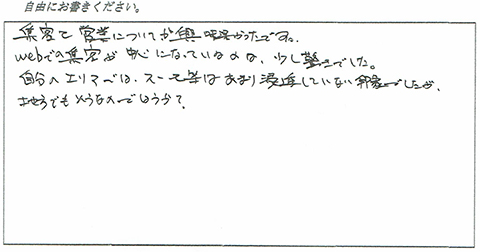 自由にお書きください。
集客と営業についてが興味深かったです。
webでの集客が中心になっているのは、少し驚きでした。
自分のエリアでは、スーモ等はあまり浸透していない印象でしたが、
地方でもそうなのでしょうか?